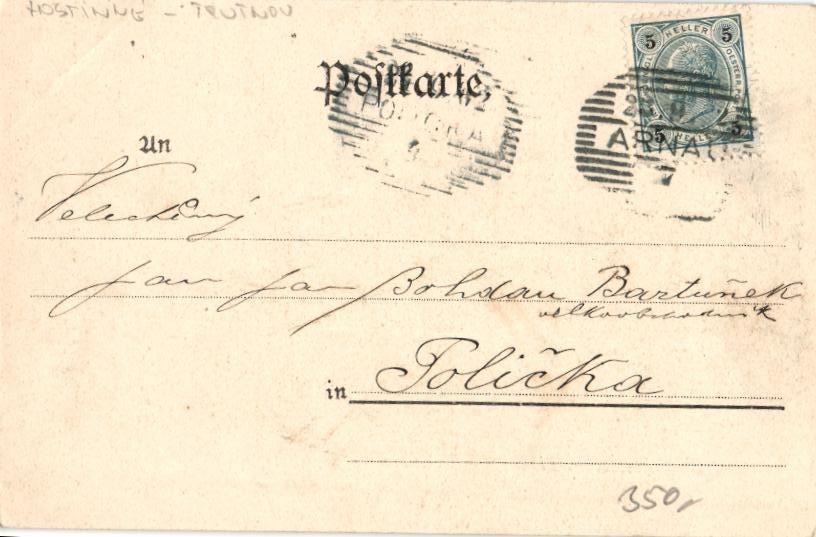 HOSTINNÉ - TRUTNOV
Postkarte.
5 HELLER 5
5 HELLER 5
ARNAU
POLICKA
An
Velectěný
pan pan Bohdan Bartuněk
velkoobchodník
in Polička
350,